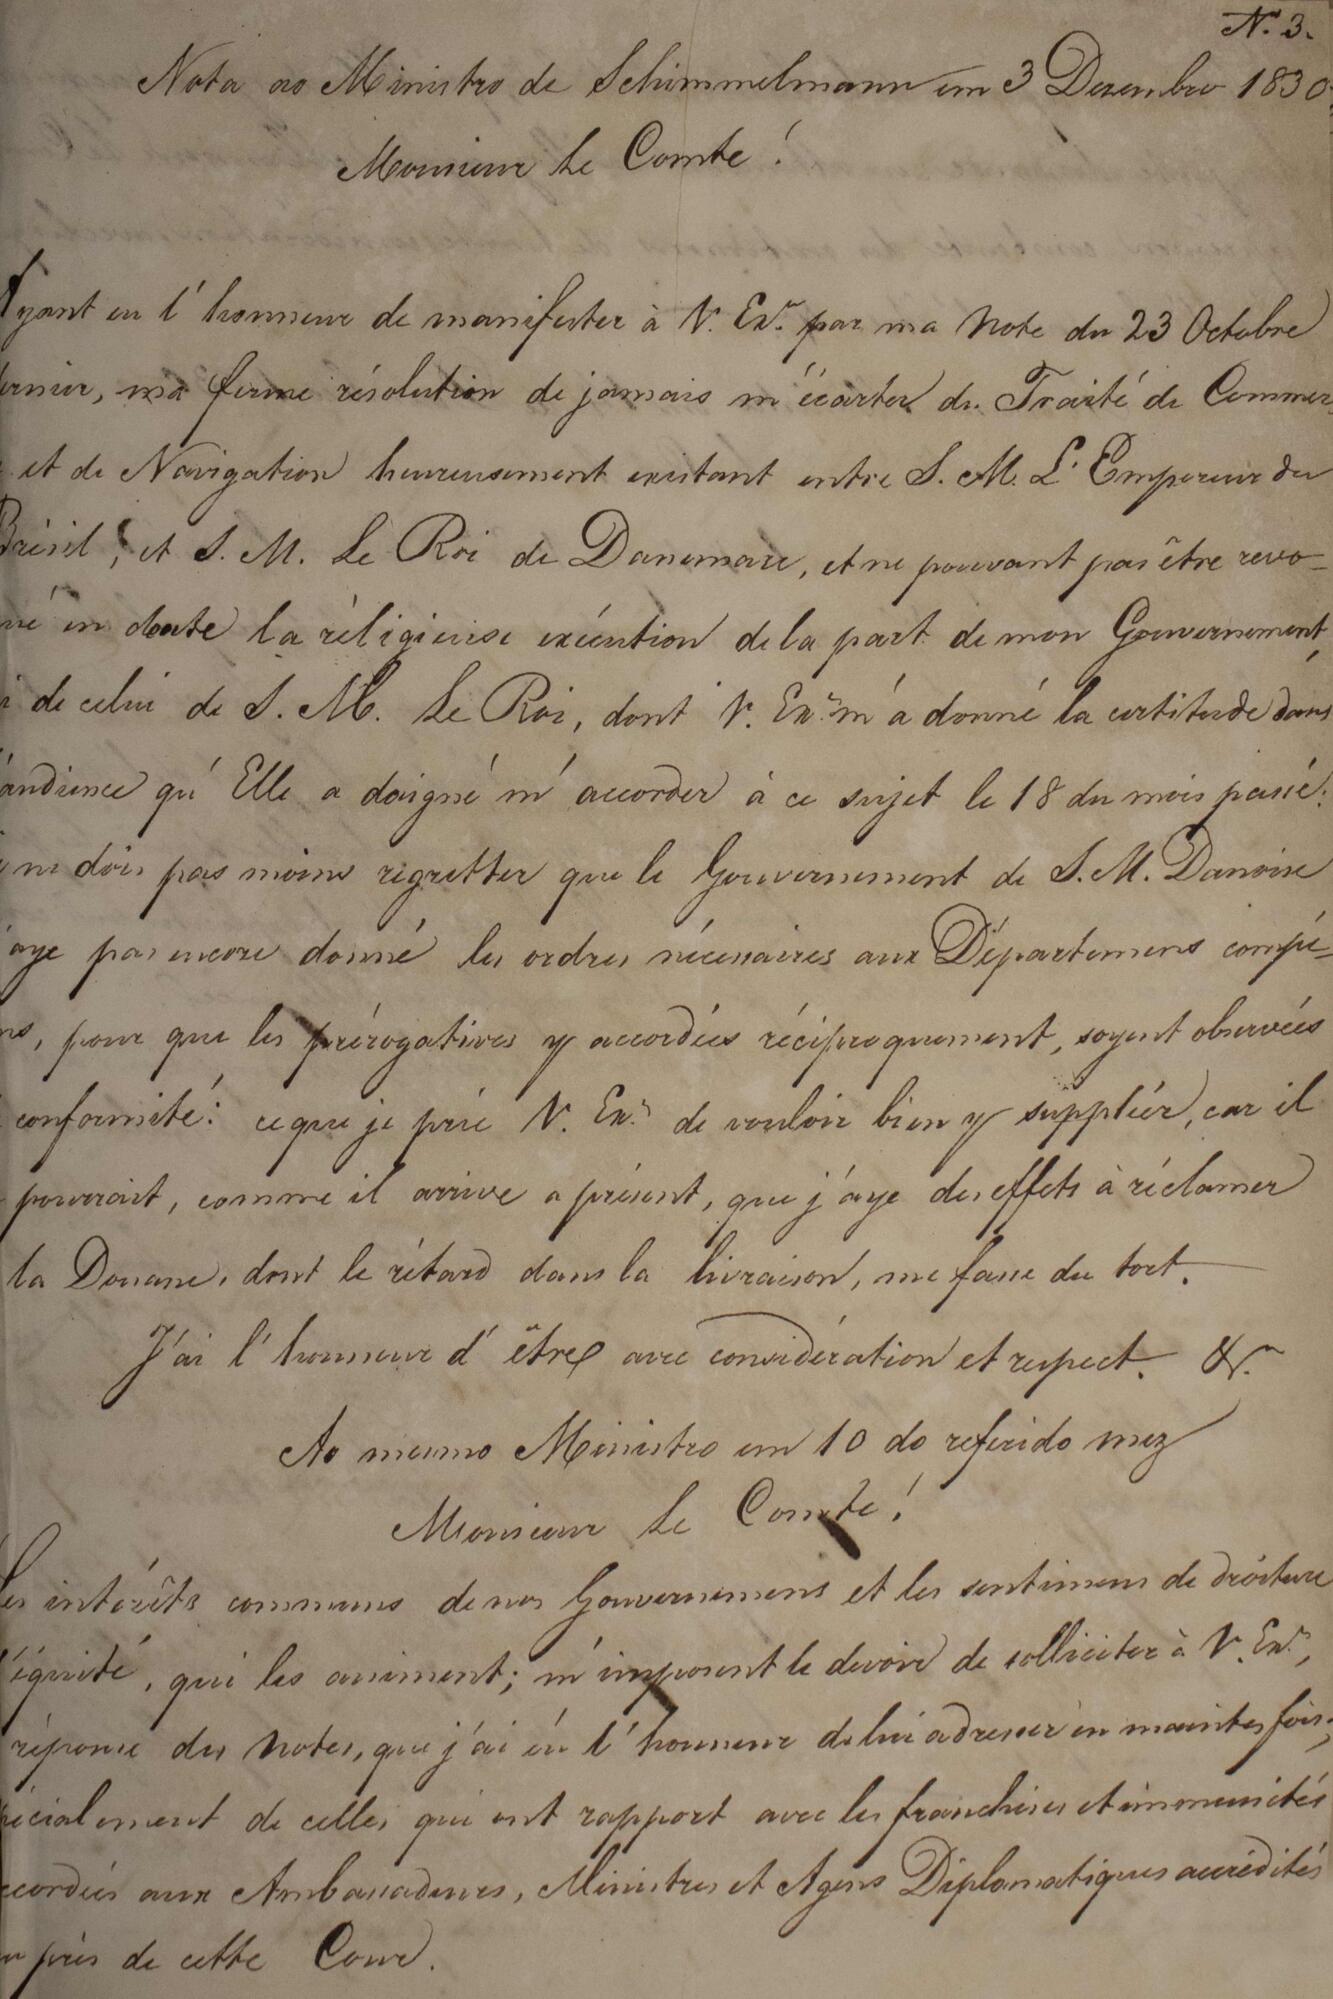 N.º 3.
Nota ao Ministro de Schimmelmann em 3 Dezembro 1830.
Monsieur Le Comte!
Ayant eu l'honneur de manifester à V. Ex.ce par ma Note du 23 Octobre
ernier, ma ferme résolution de jamais m'écarter du Traité de Commer
et de Navigation heureusement existant entre S. M. L'Empereur du
Brésil, et S. M. Le Roi de Danemarc, et ne pouvant pas être revo-
ué en doute la réligieuse exécution de la part de mon Gouvernement,
i de celui de S. M. Le Roi, dont V. Ex.ce m'a donné la certitude dans
'audience qu'Elle a daigné m'accorder à ce sujet le 18 du mois passé:
ne dois pas moins regretter que le Gouvernement de S. M. Danoise
'aye pas encore donné les ordres nécessaires aux Départemens compé-
ns, pour que les prérogatives y accordées réciproquement, soyent observées
conformité: ce que je prie V. Ex.ce de vouloir bien y suppléér, car il
pourrait, comme il arrive a présent, que j'aye des effets à réclamer
la Douane, dont le rétard dans la livraison, me fasse du tort.
J'ai l'honneur d'être avec considération et respect. &.ª
Ao mesmo Ministro em 10 do referido mez
Monsieur Le Comte!
Les intérêts communs de nos Gouvernemens et les sentimens de dróiture
'équité, qui les animent; m'imposent le devoir de solliciter à V. Ex.ce,
réponse des Notes, que j'ai éu l'honneur de lui adresser en maintes fois,
pécialement de celles qui ont rapport avec les franchises et immunités
ccordées aux Ambassadeurs, Ministres et Agens Diplomatiques accrédités
u près de cette Cour.